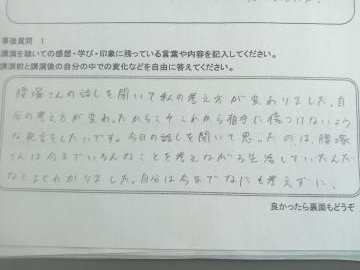 事後質問 1
講演を聴いての感想・学び・印象に残っている言葉や内容を記入してください。
講演前と講演後の自分の中での変化などを自由に答えてください。
腰塚さんの話しを聞いて私の考え方が変わりました。自
分の考え方が変わったからこそこれから相手に傷つけないよう
な発言をしたいです。今日の話しを聞いて思ったのは、腰塚
さんは今までいろんなことを考えながら生活していたんだ
なとよくわかりました。自分は今までなにも考えずに、
良かったら裏面もどうぞ